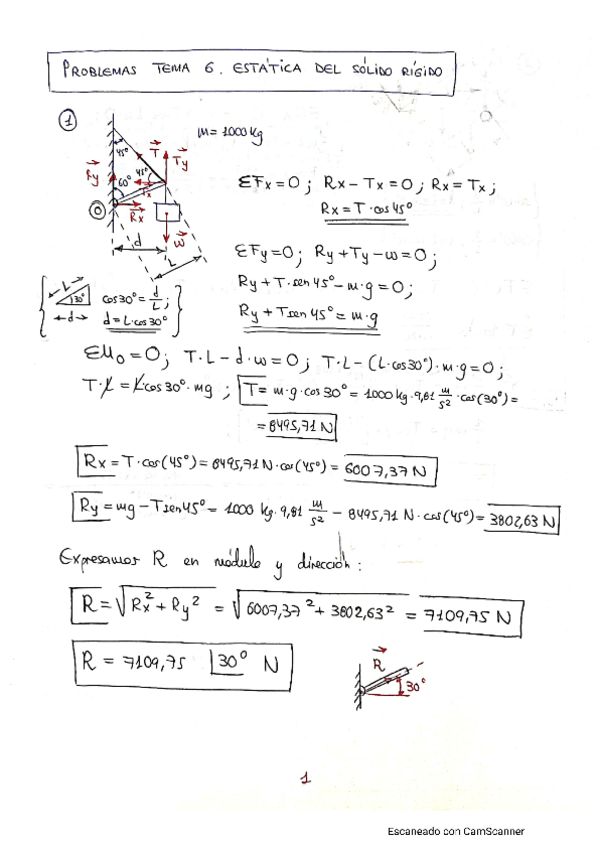 PROBLEMAS TEMA 6. ESTÁTICA DEL SÓLIDO RÍGIDO
1
m = 1000 kg
45° T Ty
Ry 60° 45° Tx
O Rx
d W
L
ΣFx = 0 ; Rx - Tx = 0 ; Rx = Tx ;
Rx = T · cos 45°
ΣFy = 0 ; Ry + Ty - w = 0 ;
Ry + T · sen 45° - m · g = 0 ;
Ry + T sen 45° = m · g
L 30° d cos 30° = d/L ;
d = L · cos 30°
ΣM₀ = 0 ; T · L - d · w = 0 ; T · L - (L · cos 30°) · m · g = 0 ;
T · L = L · cos 30° · mg ; T = m · g · cos 30° = 1000 kg · 9,81 m/s² · cos (30°) =
= 8495,71 N
Rx = T · cos (45°) = 8495,71 N · cos (45°) = 6007,37 N
Ry = mg - T sen 45° = 1000 kg · 9,81 m/s² - 8495,71 N · cos (45°) = 3802,63 N
Expresamos R en módulo y dirección :
R = √Rx² + Ry² = √6007,37² + 3802,63² = 7109,75 N
R = 7109,75 |30° N
R
30°
1
Escaneado con CamScanner